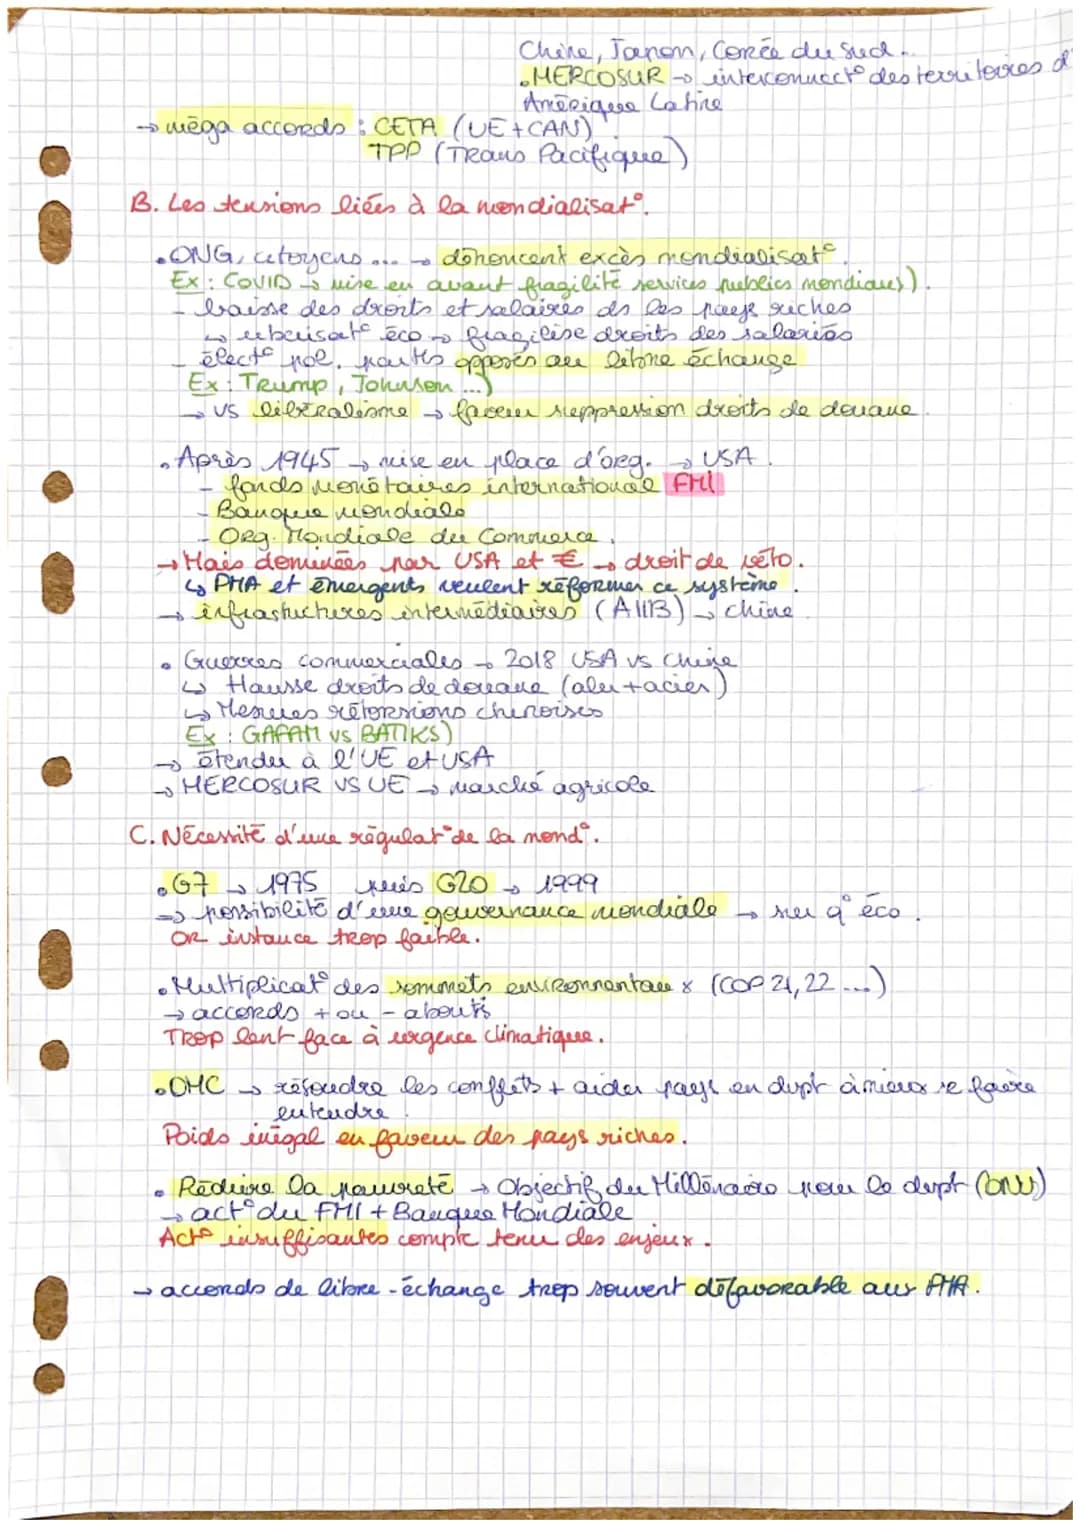 Chine, Japon, Corée du Sud..
.MERCOSUR → interconnect° des territoires d'
Amérique Latine
→ méga accords : CETA (UE+CAN)
TPP (Trans Pacifique)
B. Les tensions liées à la mondialisat°.
. ONG, citoyens ... → dénoncent excès mondialisat°.
Ex : COVID → mise en avant fragilité services publics mondiaux).
- baisse des droits et salaires ds les pays riches
↳ ubérisat° éco → fragilise droits des salariés
- élect° pol. partis opposés au libre échange
Ex : Trump, Johnson ...)
→ VS libéralisme → faveur suppression droits de douane.
. Après 1945 → mise en place d'org. → USA.
- fonds monétaires international FMI
- Banque mondiale
- Org. Mondiale du Commerce.
→ Mais dominées par USA et € → droit de véto.
↳ PMA et émergents veulent réformer ce système.
→ infrastuctures intermédiaires (AIIB) → chine.
. Guerres commerciales → 2018 USA vs Chine
↳ Hausse droits de douane (alu+acier)
↳ Mesures rétorsions chinoises
Ex : GAFAM vs BATIKS)
→ étendu à l'UE et USA
→ MERCOSUR VS UE → marché agricole
C. Nécessité d'une régulat° de la mond°.
. G7 → 1975 puis G20 → 1999
→ possibilité d'une gouvernance mondiale → sur q° éco.
OR instance trop faible.
. Multiplicat° des sommets environnentaux (COP 21, 22 ...)
→ accords + ou - aboutis
Trop lent face à urgence climatique.
. OMC → résoudre les conflits + aider pays en dvpt à mieux se faire
entendre.
Poids inégal en faveur des pays riches.
. Réduire la pauvreté → Objectif du Millénaire pour le dvpt (ONU)
→ act° du FMI + Banque Mondiale
Act° insuffisantes compte tenu des enjeux.
→ accords de libre-échange trop souvent défavorable aux PMA.